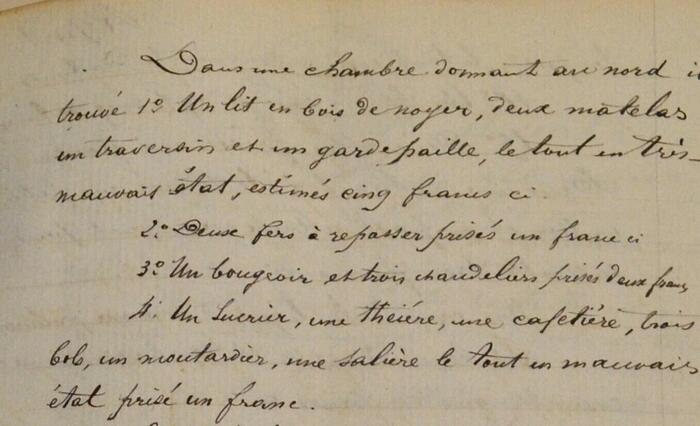 Dans une chambre donnant au nord i
trouvé 1º Un lit en bois de noyer, deux matelas
un traversin et un garde paille, le tout en très-
mauvais état, estimés cinq francs ci.
2º Deux fers à repasser prisés un franc ci
3º Un bougeoir et trois chandeliers prisés deux francs
4º Un Sucrier, une théiére, une cafetiére, trois
bols, un moutardier, une salière le tout en mauvais
état prisé un franc.